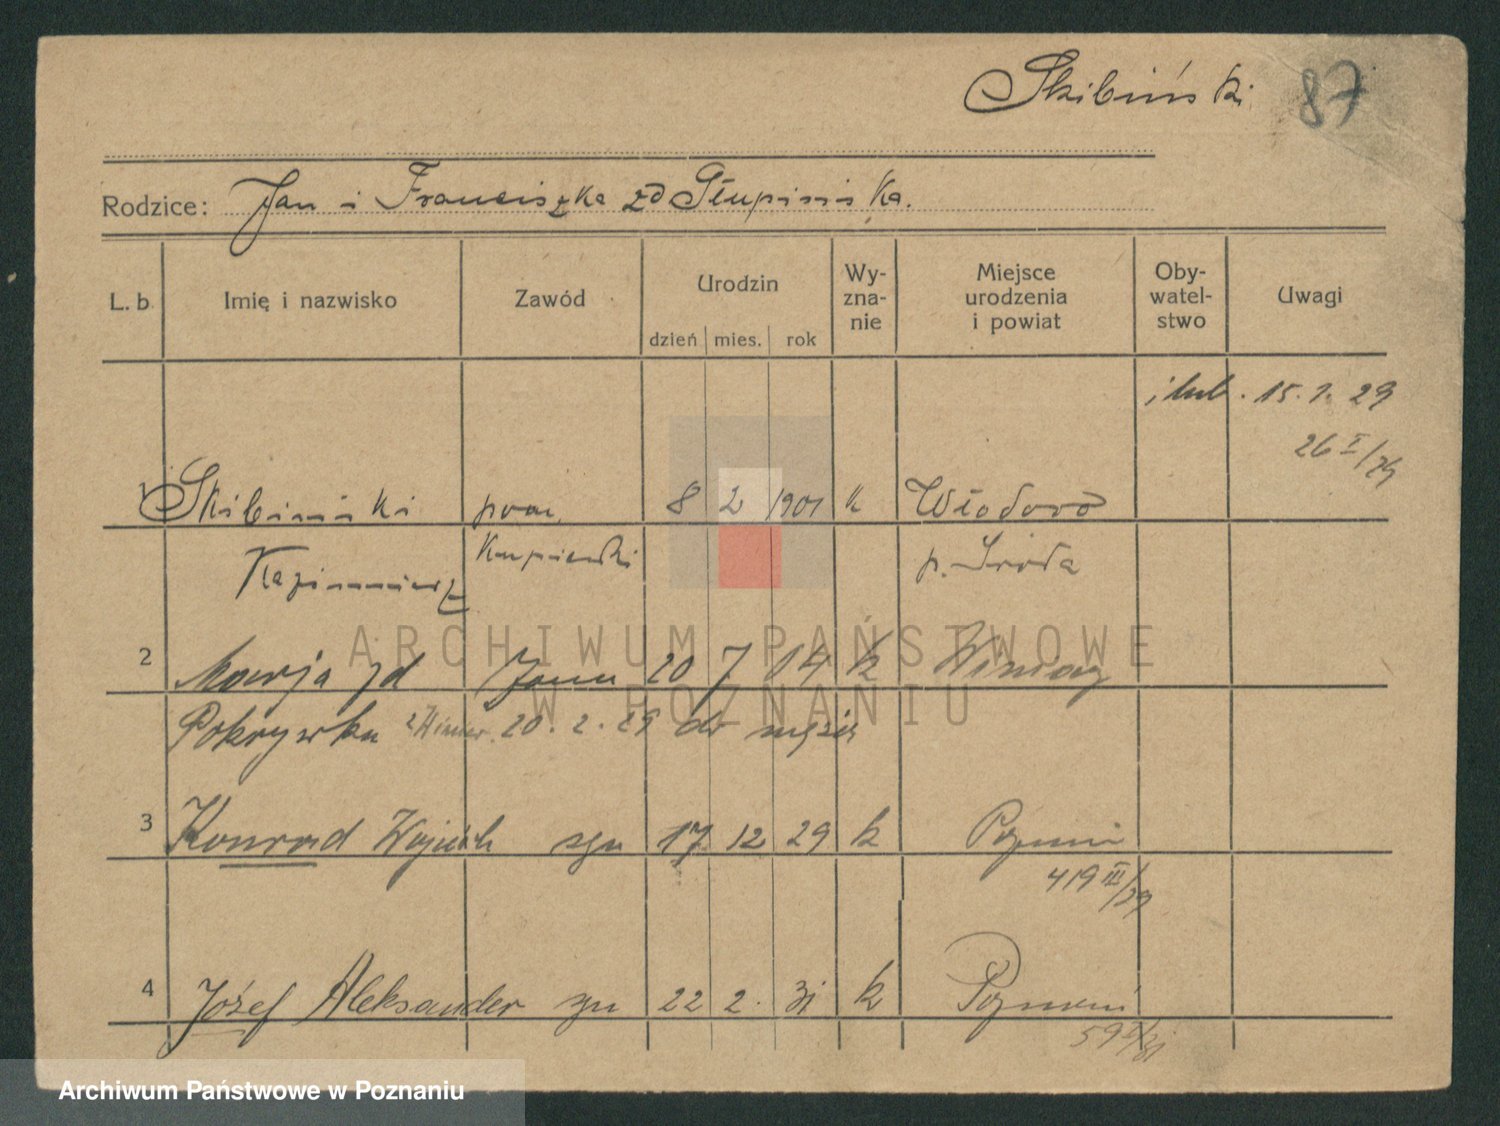 Skibiński 87
Rodzice: Jan i Franciszka zd Słupińska.
L. b. Imię i nazwisko Zawód Urodzin dzień mies. rok Wy-zna-nie Miejsce urodzenia i powiat Oby-watel-stwo Uwagi
ślub. 15. 1. 29
26 I/
1 Skibiński prac. 8 2 1901 k
Kazimierz Kupiecki p. Środa
2 Marja zd 20 7 04 k Winiary
Pokrywka 20. 2. 29 do męża
3 Konrad Wojciech syn 17 12 29 k Poznań
419 III/29
4 Józef Aleksander syn 22 2. 31 k Poznań
ARCHIWUM PAŃSTWOWE
W POZNANIU
Archiwum Państwowe w Poznaniu